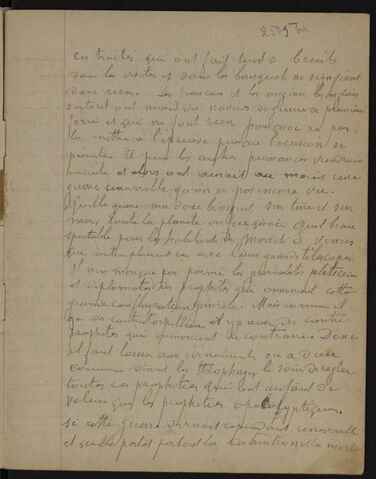 ces traités qui ont fait tant de bruits
dans les visites et dans les banquets ne signifient
donc rien. Les français et les anglais, les anglais
surtout ont aussi des navires de guerre de première
force et qui ne font rien pourquoi ne pas
les mettre à l'épreuve puisque l'occasion se
présente. Et puis les autres puissances viendraient
ensuite et alors on aurait au moins une
guerre universelle qu'on a pas encore vue.
quelle guerre ma doue binniguet sur terre et sur
mer, toute la planète en feu quoi. Quel beau
spectacle pour les habitants de Mars et de Vénus
que contemplent ça avec leurs grands télescopes
Il ne manque pas parmi les journalistes politiciens
et diplomates des prophètes qui annoncent cette
grande conflagration générale. Mais comme il
y a des contre il y a aussi des contre
prophètes qui annoncent le contraire. Donc
il faut laisser aux événements ou a dieu
comme disent les théophages le soin de régler
toutes ces prophéties qui ont autant de
valeur que les prophéties apocalyptiques.
si cette guerre devenait cependant universelle
et qu'elle porte partout la destruction et la mort